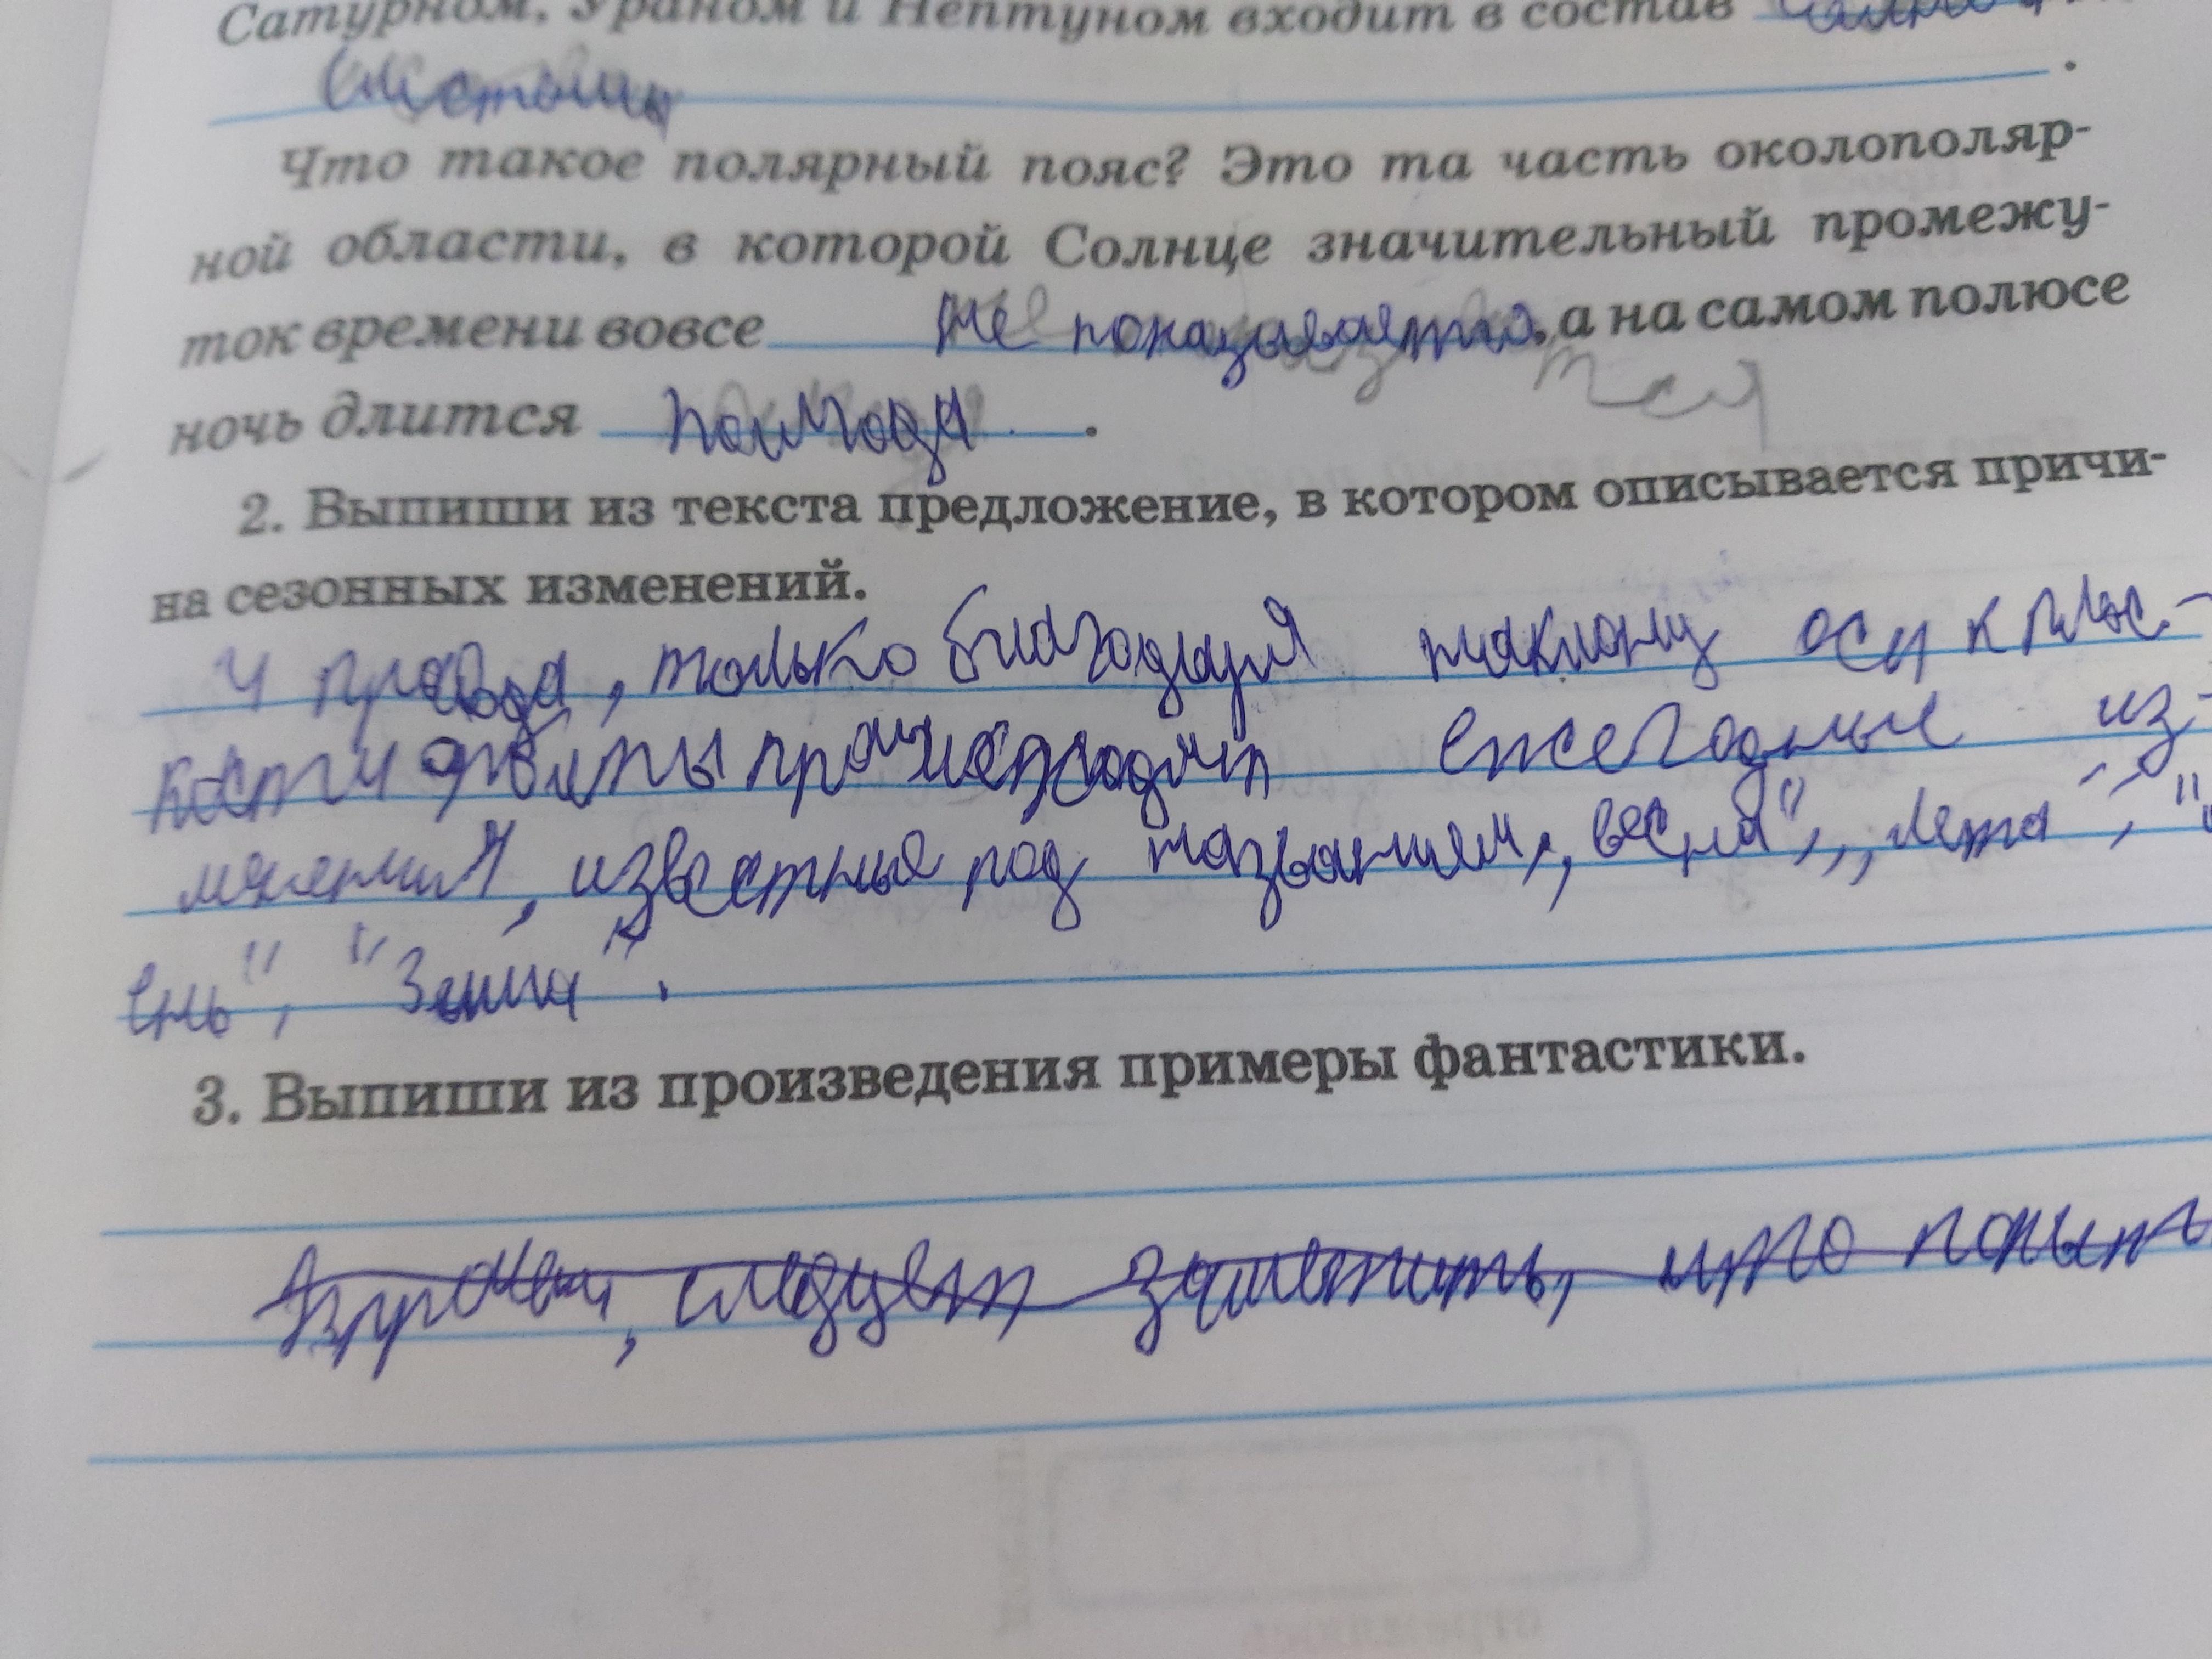 Сатурном, Ураном и Нептуном входит в состав
системы .
Что такое полярный пояс? Это та часть околополяр-
ной области, в которой Солнце значительный промежу-
ток времени вовсе не показывается, а на самом полюсе
ночь длится полгода .
2. Выпиши из текста предложение, в котором описывается причи-
на сезонных изменений.
И правда, только благодаря наклону оси к плос-
кости орбиты происходят ежегодные из-
менения, известные под названием „весна", „лето", "о
ень", "Зима".
3. Выпиши из произведения примеры фантастики.
Впрочем, следует заметить, что